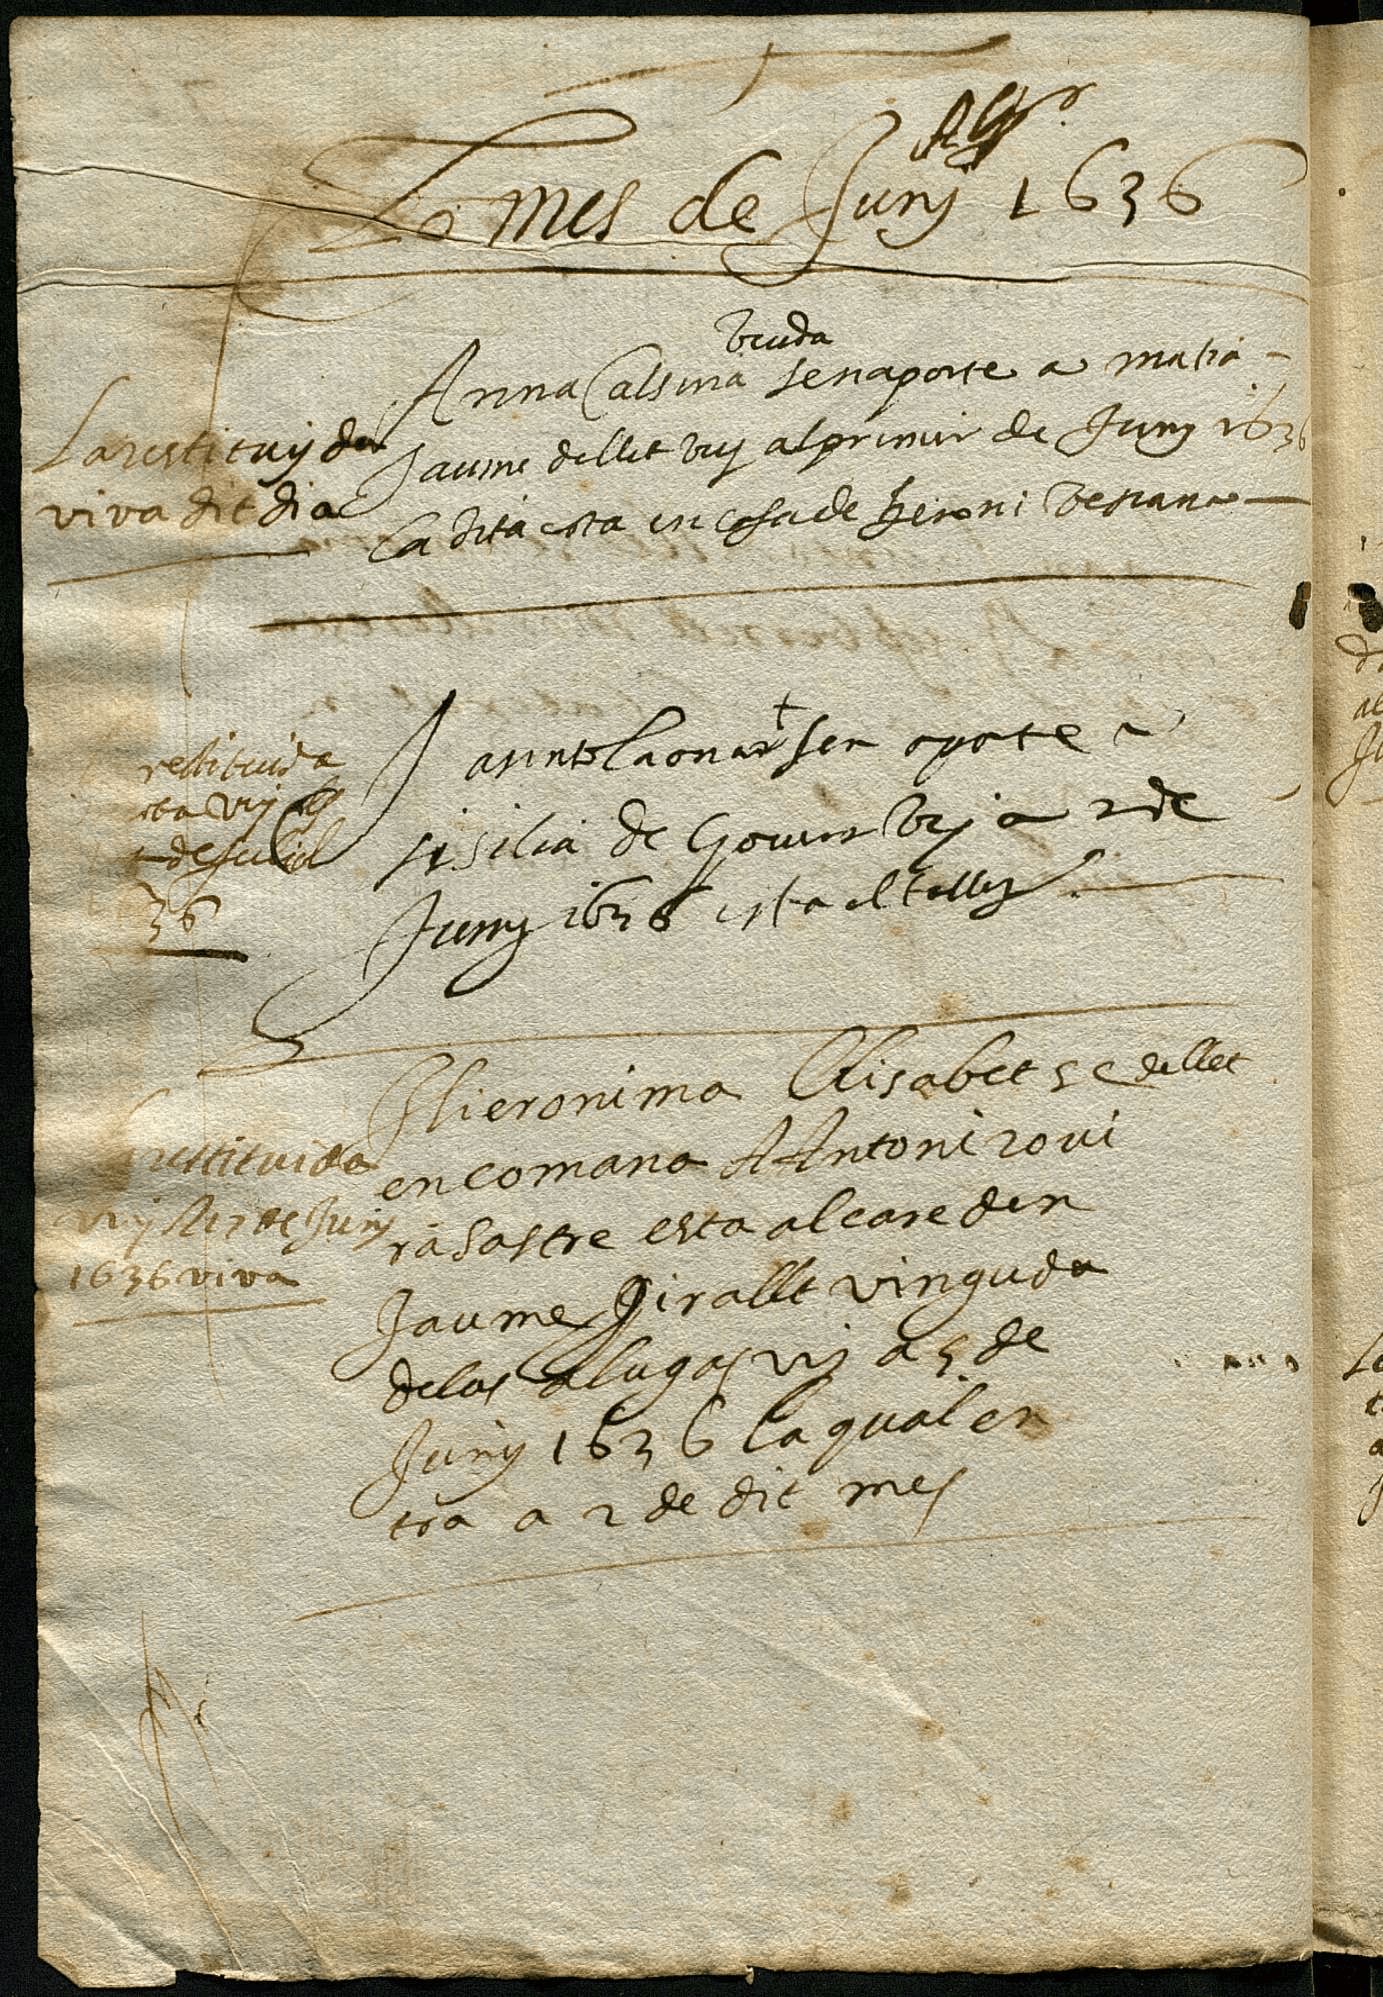 Lo mes de Juny 1636
viuda
Anna Calsina senaporte a matia
Jaume de llet vuy al primer de Juny 1636
la dita esta en casa de Heroni
La restituyda
viva dit dia
Jasinto sen aporte a
sisilia de vuy a 2 de
Juny 1636 esta al
restituida
vuy
de Juliol
36
Hieronima Elisabet se de llet
encomana A Antoni rovi
ra sastre esta al care den
Jaume Giralt vinguda
de vuy a 5 de
Juny 1636 la qual en
tra a 2 de dit mes
restituida
vuy de Juny
1636 viva